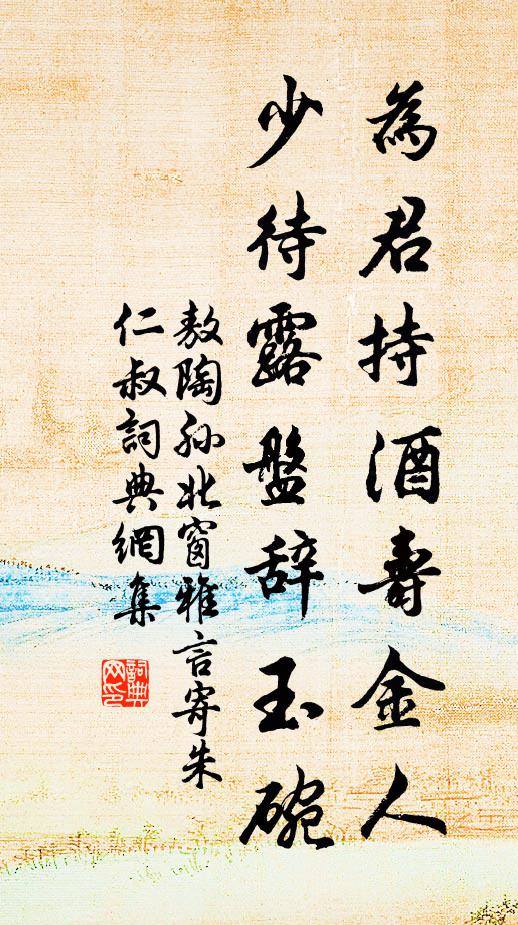 為君持酒壽金人
少待露盤辞玉碗
敖陶孫北窗雅言寄朱
仁叔詞典網集
詞典网印